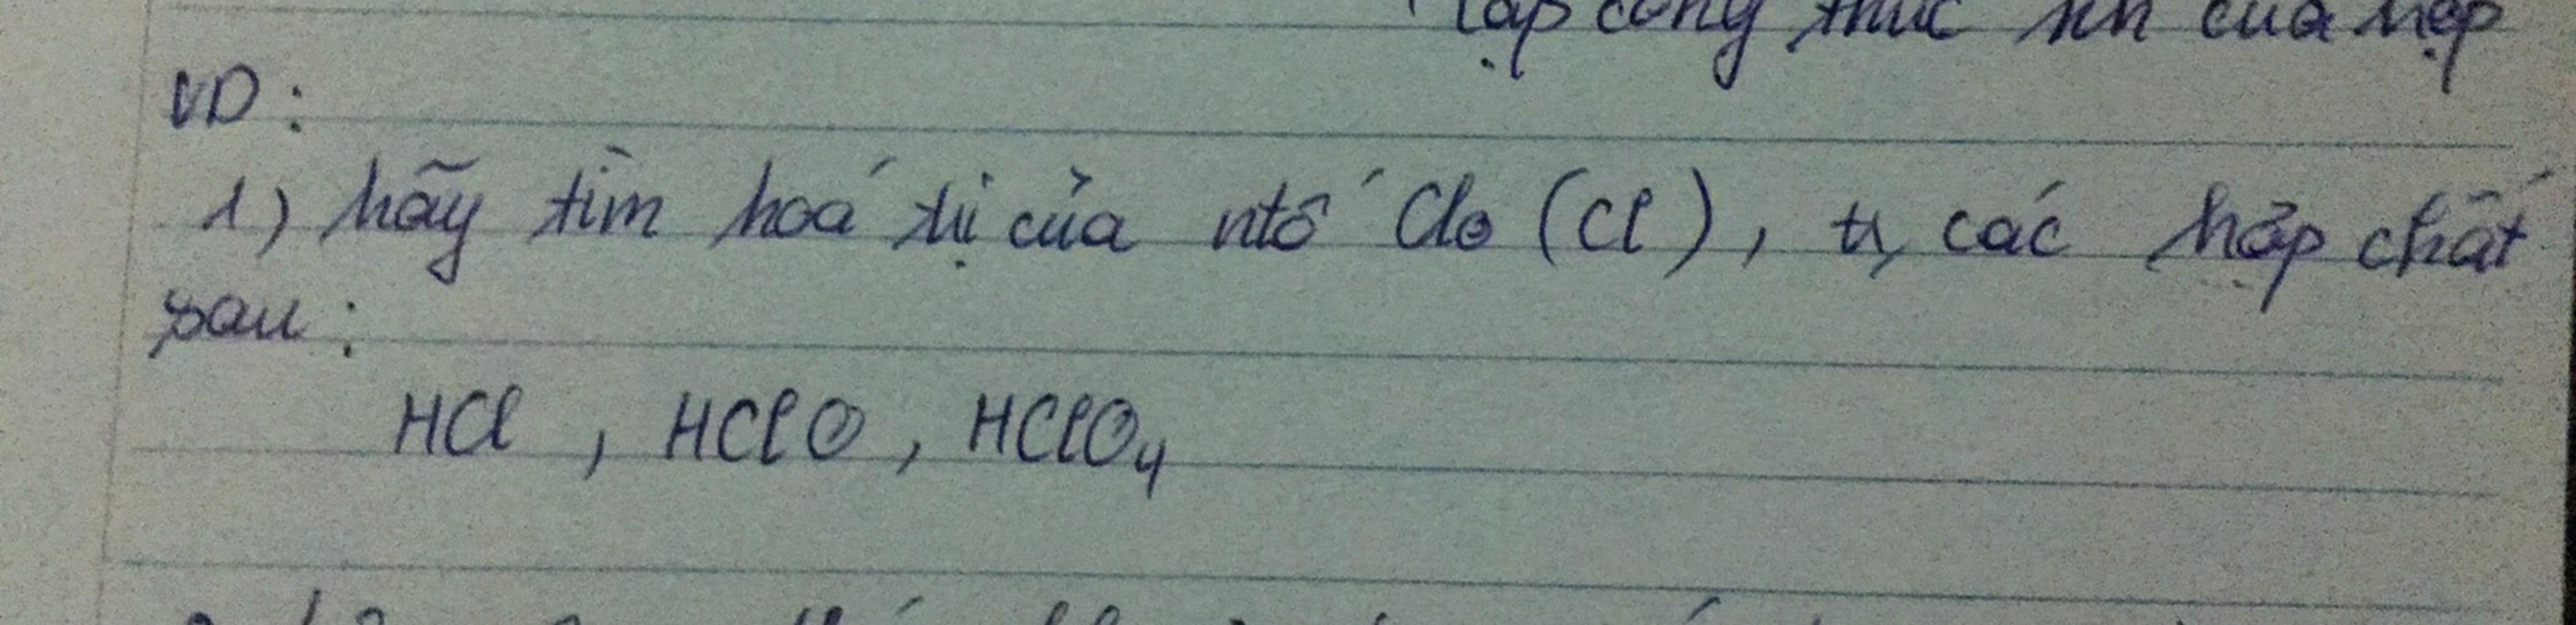 lập công thức hh của hợp
VD:
1) hãy tìm hoá trị của ntố Clo (Cl), tr, các hợp chất
sau:
HCl , HClO , HClO₄